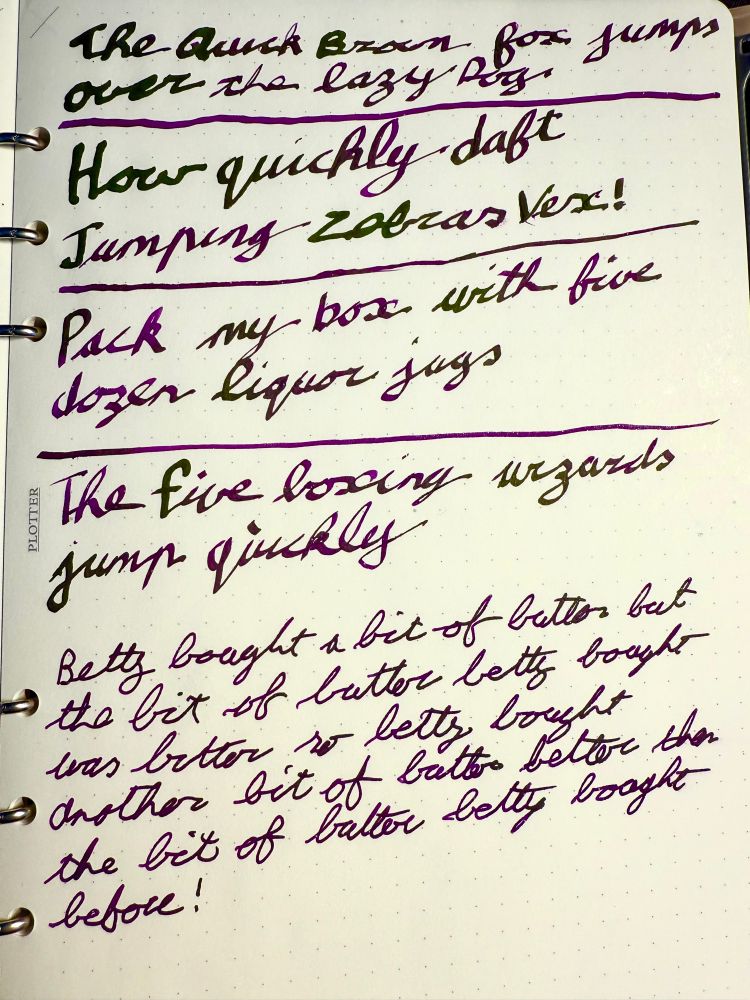 The Quick Brown fox jumps
over the lazy Dog.
How quickly daft
Jumping Zebras Vex!
Pack my box with five
dozen liquor jugs
The five boxing wizards
jump quickly
PLOTTER
Betty bought a bit of butter but
the bit of butter betty bought
was bitter so betty bought
another bit of butter better than
the bit of butter betty bought
before!